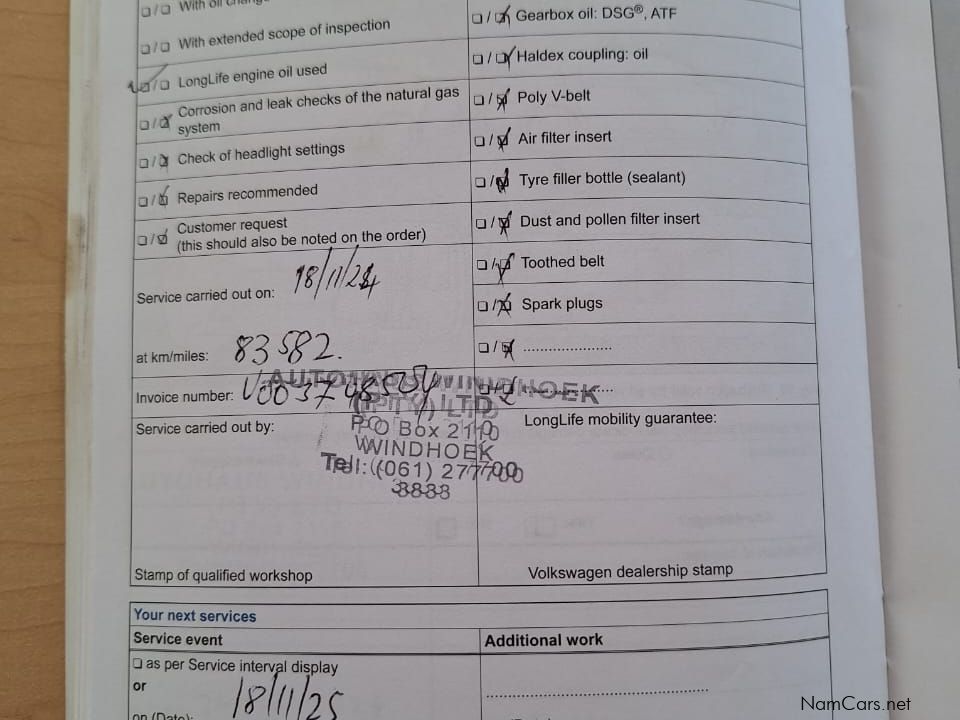 With oil change
With extended scope of inspection
LongLife engine oil used
Corrosion and leak checks of the natural gas
system
Check of headlight settings
Repairs recommended
Customer request
(this should also be noted on the order)
Service carried out on: 18/11/24
at km/miles: 83582.
Invoice number:
Service carried out by:
Stamp of qualified workshop
Gearbox oil: DSG®, ATF
Haldex coupling: oil
Poly V-belt
Air filter insert
Tyre filler bottle (sealant)
Dust and pollen filter insert
Toothed belt
Spark plugs
.....................
LongLife mobility guarantee:
Volkswagen dealership stamp
WINDHOEK
(PTY) LTD
P O Box 2110
WINDHOEK
Tel: (061) 277700
Your next services
Service event
as per Service interval display
or
on (Date): 18/11/25
Additional work
NamCars.net